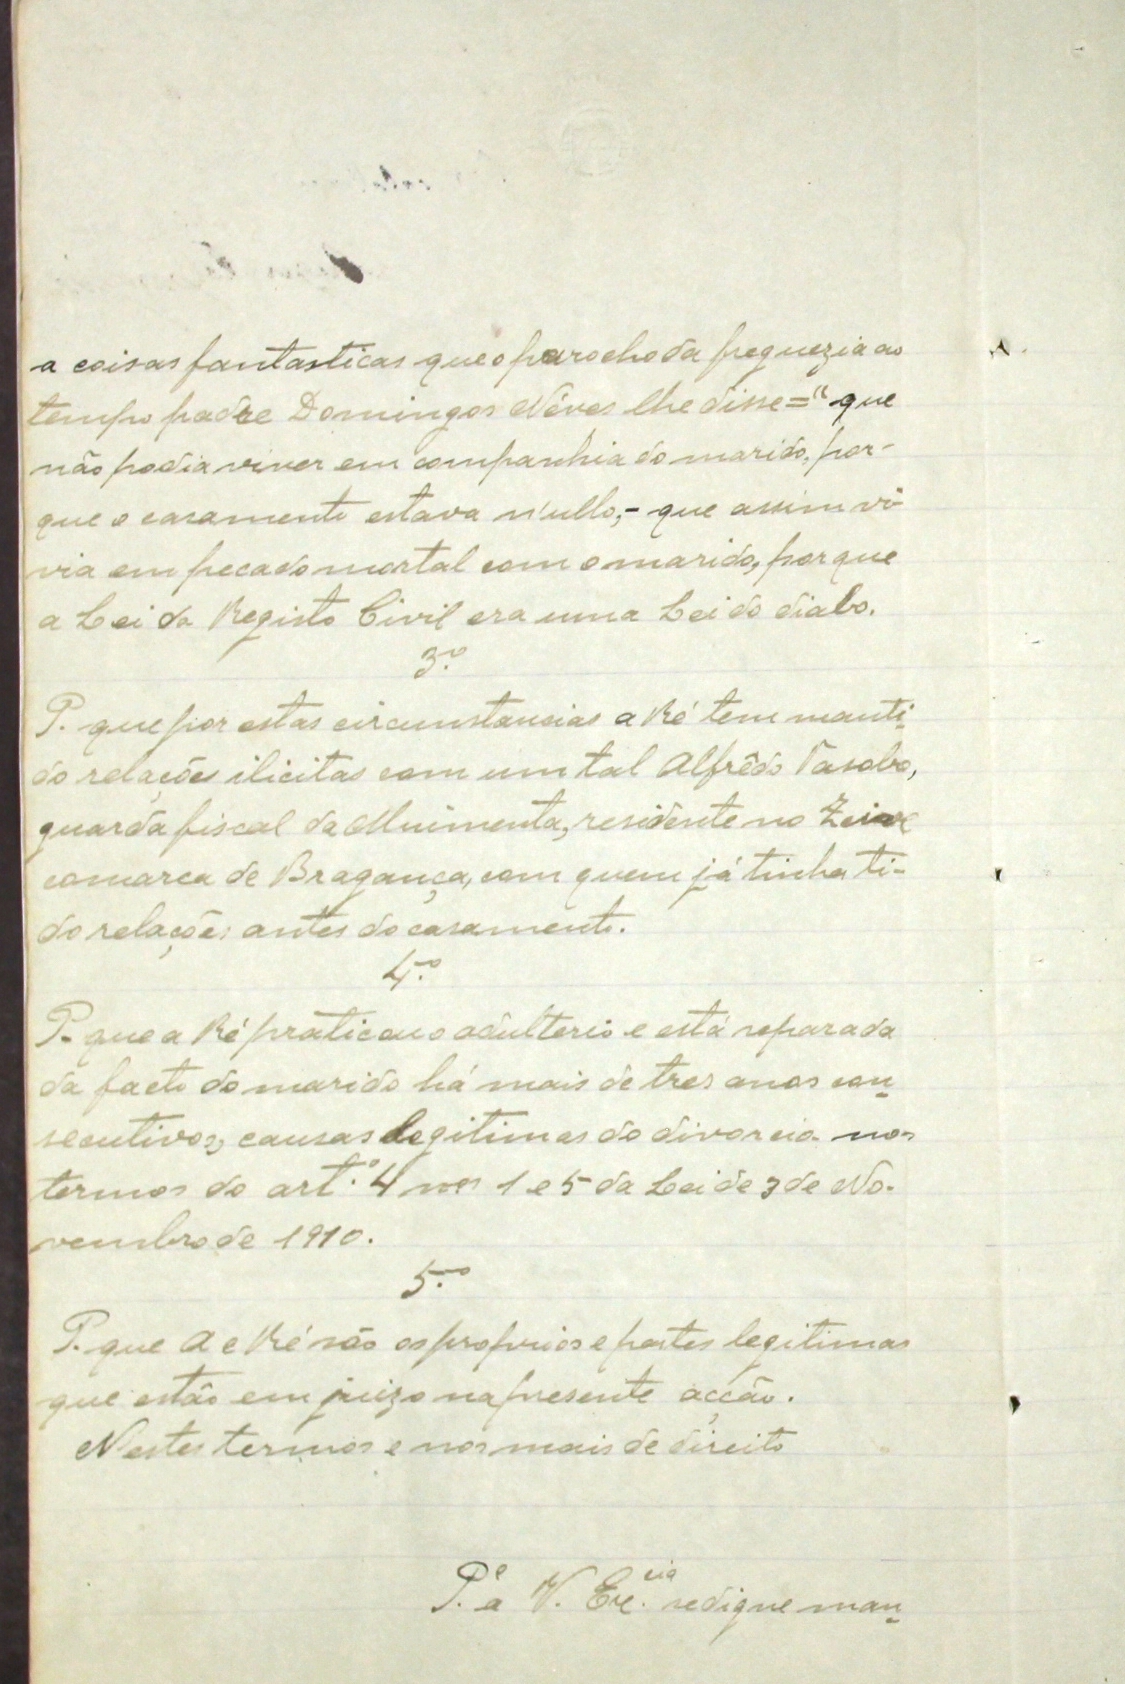 a coisas fantasticas que o parocho da freguezia ao
tempo padre Domingos Néves lhe disse = " que
não podia viver em companhia do marido, por-
que o casamento estava n'ullo, - que assim vi-
via em pecado mortal com o marido, porque
a Lei do Registo Civil era uma Lei do diabo.
3.º
P. que por estas circumstancias a Ré tem manti-
do relações ilicitas com um tal Alfrêdo
guarda fiscal da Muimenta, residente no Zeive
comarca de Bragança, com quem já tinha ti-
do relações antes do casamento.
4.º
P. que a Ré praticou o adulterio e está separada
da facto do marido há mais de tres anos con-
secutivos, causas legitimas do divorcio nos
termos do art.º 4 nos 1 e 5 da Lei de 3 de No-
vembro de 1910.
5.º
P. que A e Ré são os proprios e partes legitimas
que estão em juizo na presente acção.
Nestes termos e nos mais de direito
P.e a V. Exc.cia se digne man-